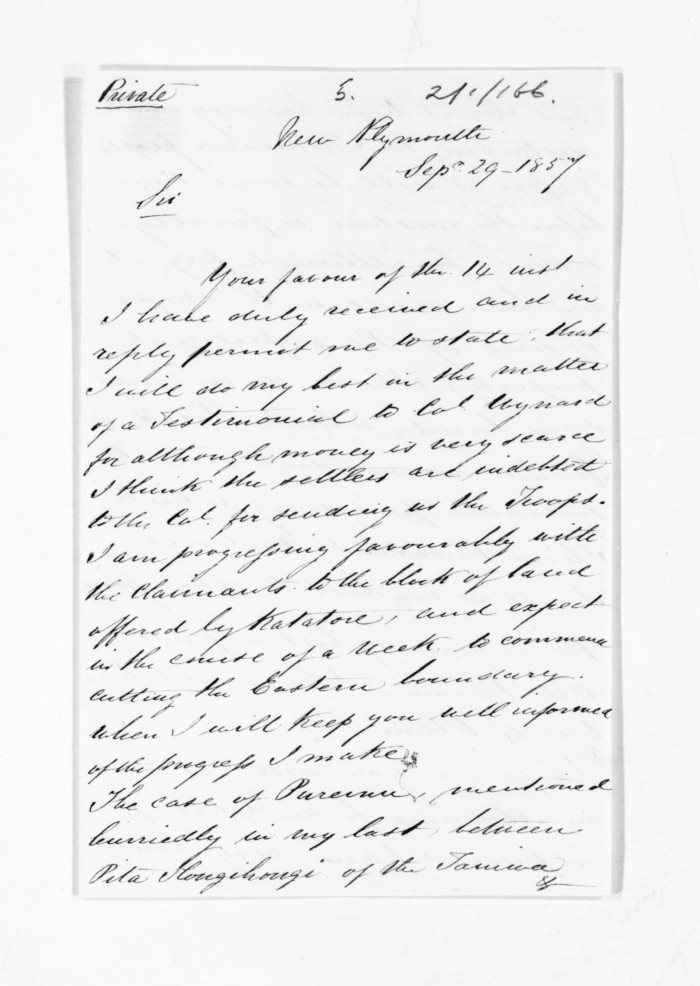 Private 5. 21/1/66.
New Plymouth
Sepr. 29 - 1857
Sir
Your favour of the 14 inst
I have duly received and in
reply permit me to state, that
I will do my best in the matter
of a Testimonial to Col. Wynard
for although money is very scarce
I think the settlers are indebted
to the Col. for sending us the Troops.
I am progressing favourably with
the claimants to the block of land
offered by Katatore, and expect
in the course of a week to commence
cutting the Eastern boundary.
when I will keep you well informed
of the progress I make
The case of mentioned
hurriedly in my last, between
Pita Hongihongi of the Taniwa
&